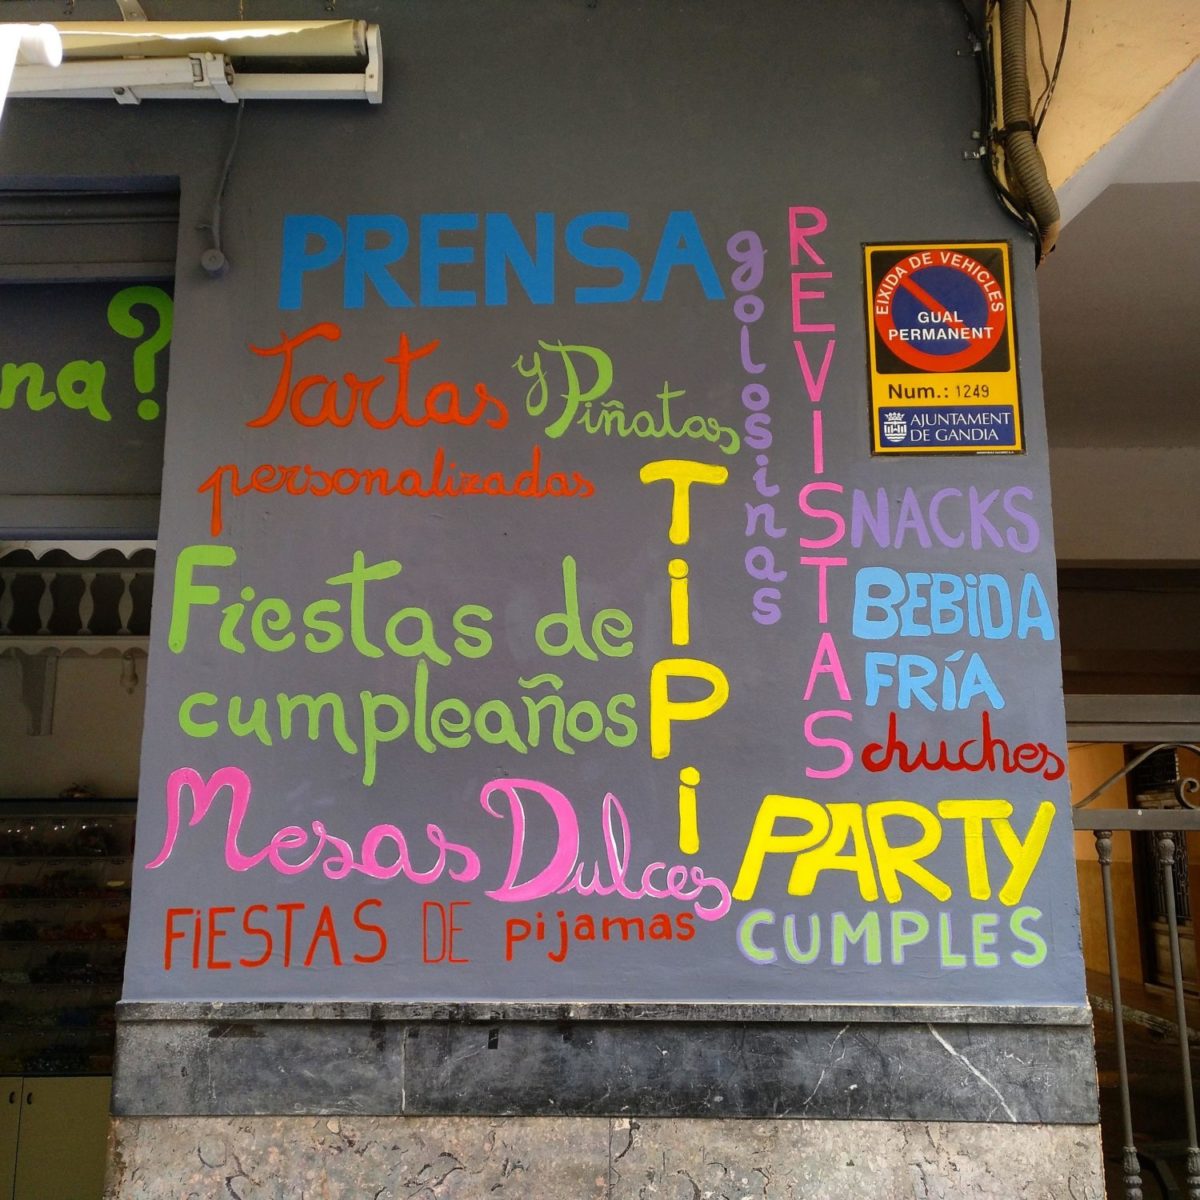 na?
PRENSA
golosinas
REVISTAS
EIXIDA DE VEHICLES
GUAL
PERMANENT
Num.: 1249
AJUNTAMENT
DE GANDIA
Tartas
y Piñatas
personalizadas
TiPi
SNACKS
BEBiDA
FRÍA
chuches
Fiestas de
cumpleaños
Mesas Dulces
PARTY
CUMPLES
FiESTAS DE pijamas